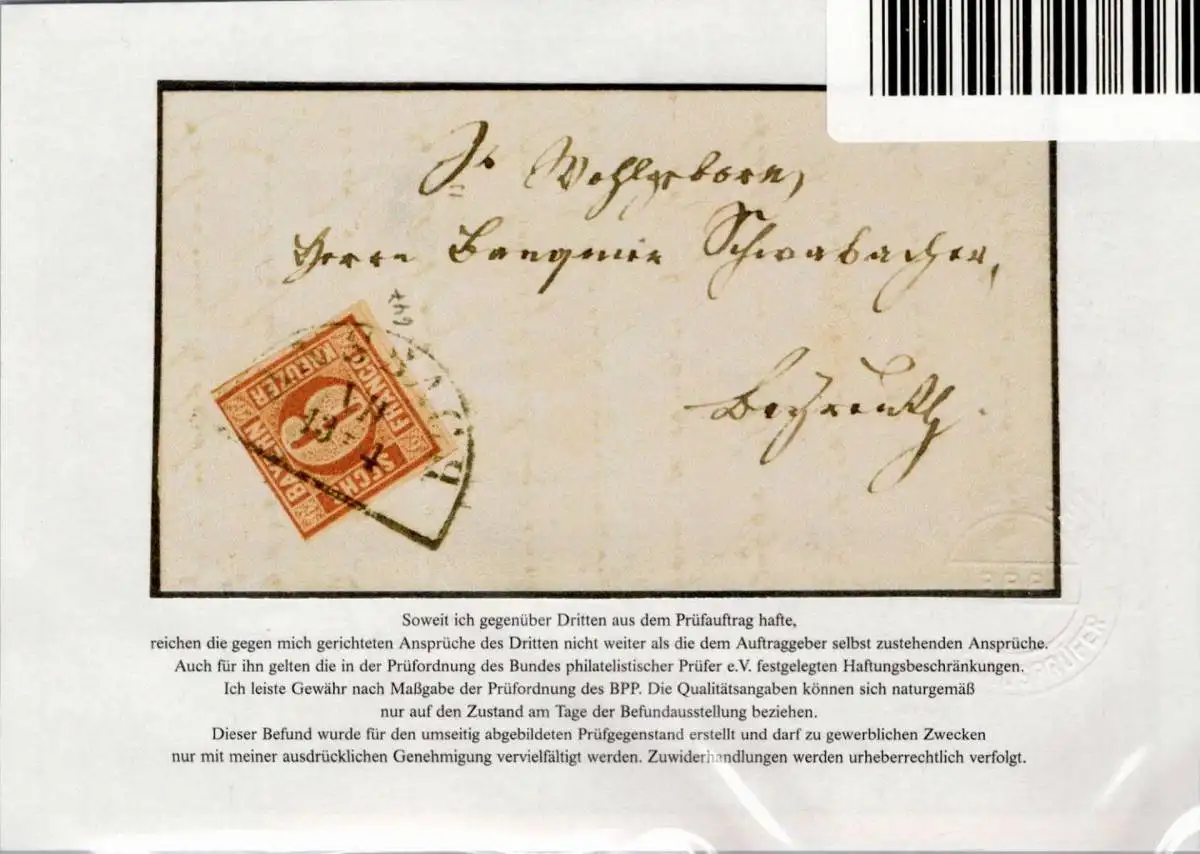 Sr Wohlgeborn,
Herrn Banquier Schwabacher,
Bayreuth.
BAYERN
FRANCO
SECHS
KREUZER
6
VII
13 1
Soweit ich gegenüber Dritten aus dem Prüfauftrag hafte,
reichen die gegen mich gerichteten Ansprüche des Dritten nicht weiter als die dem Auftraggeber selbst zustehenden Ansprüche.
Auch für ihn gelten die in der Prüfordnung des Bundes philatelistischer Prüfer e.V. festgelegten Haftungsbeschränkungen.
Ich leiste Gewähr nach Maßgabe der Prüfordnung des BPP. Die Qualitätsangaben können sich naturgemäß
nur auf den Zustand am Tage der Befundausstellung beziehen.
Dieser Befund wurde für den umseitig abgebildeten Prüfgegenstand erstellt und darf zu gewerblichen Zwecken
nur mit meiner ausdrücklichen Genehmigung vervielfältigt werden. Zuwiderhandlungen werden urheberrechtlich verfolgt.
PRÜFER